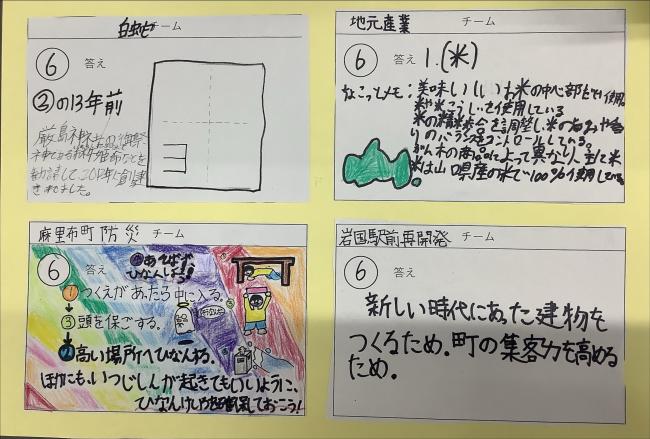 白蛇 チーム
⑥ 答え
③の13年前
厳島神社の御祭
この年に創事
されました。
地元産業 チーム
⑥ 答え 1.(米)
なこっとメモ:美味しいお米の中心部だけ使用。
米や米こうじを使用している
米の精米歩合を調整し、米の旨みや香
りのバランスをコントロールしている。
米は山口県産の米で100%使用している
麻里布町防災 チーム
⑥ 答え
ひなんしよう!
① つくえがあったら中に入る。
③ 頭を保ごする。
② 高い場所へひなんする。
ほかにも、いつじしんが起きてもいいように、
ひなんけいろを確認しておこう!
岩国駅前再開発 チーム
⑥ 答え
新しい時代にあった建物を
つくるため。町の集客力を高める
ため。